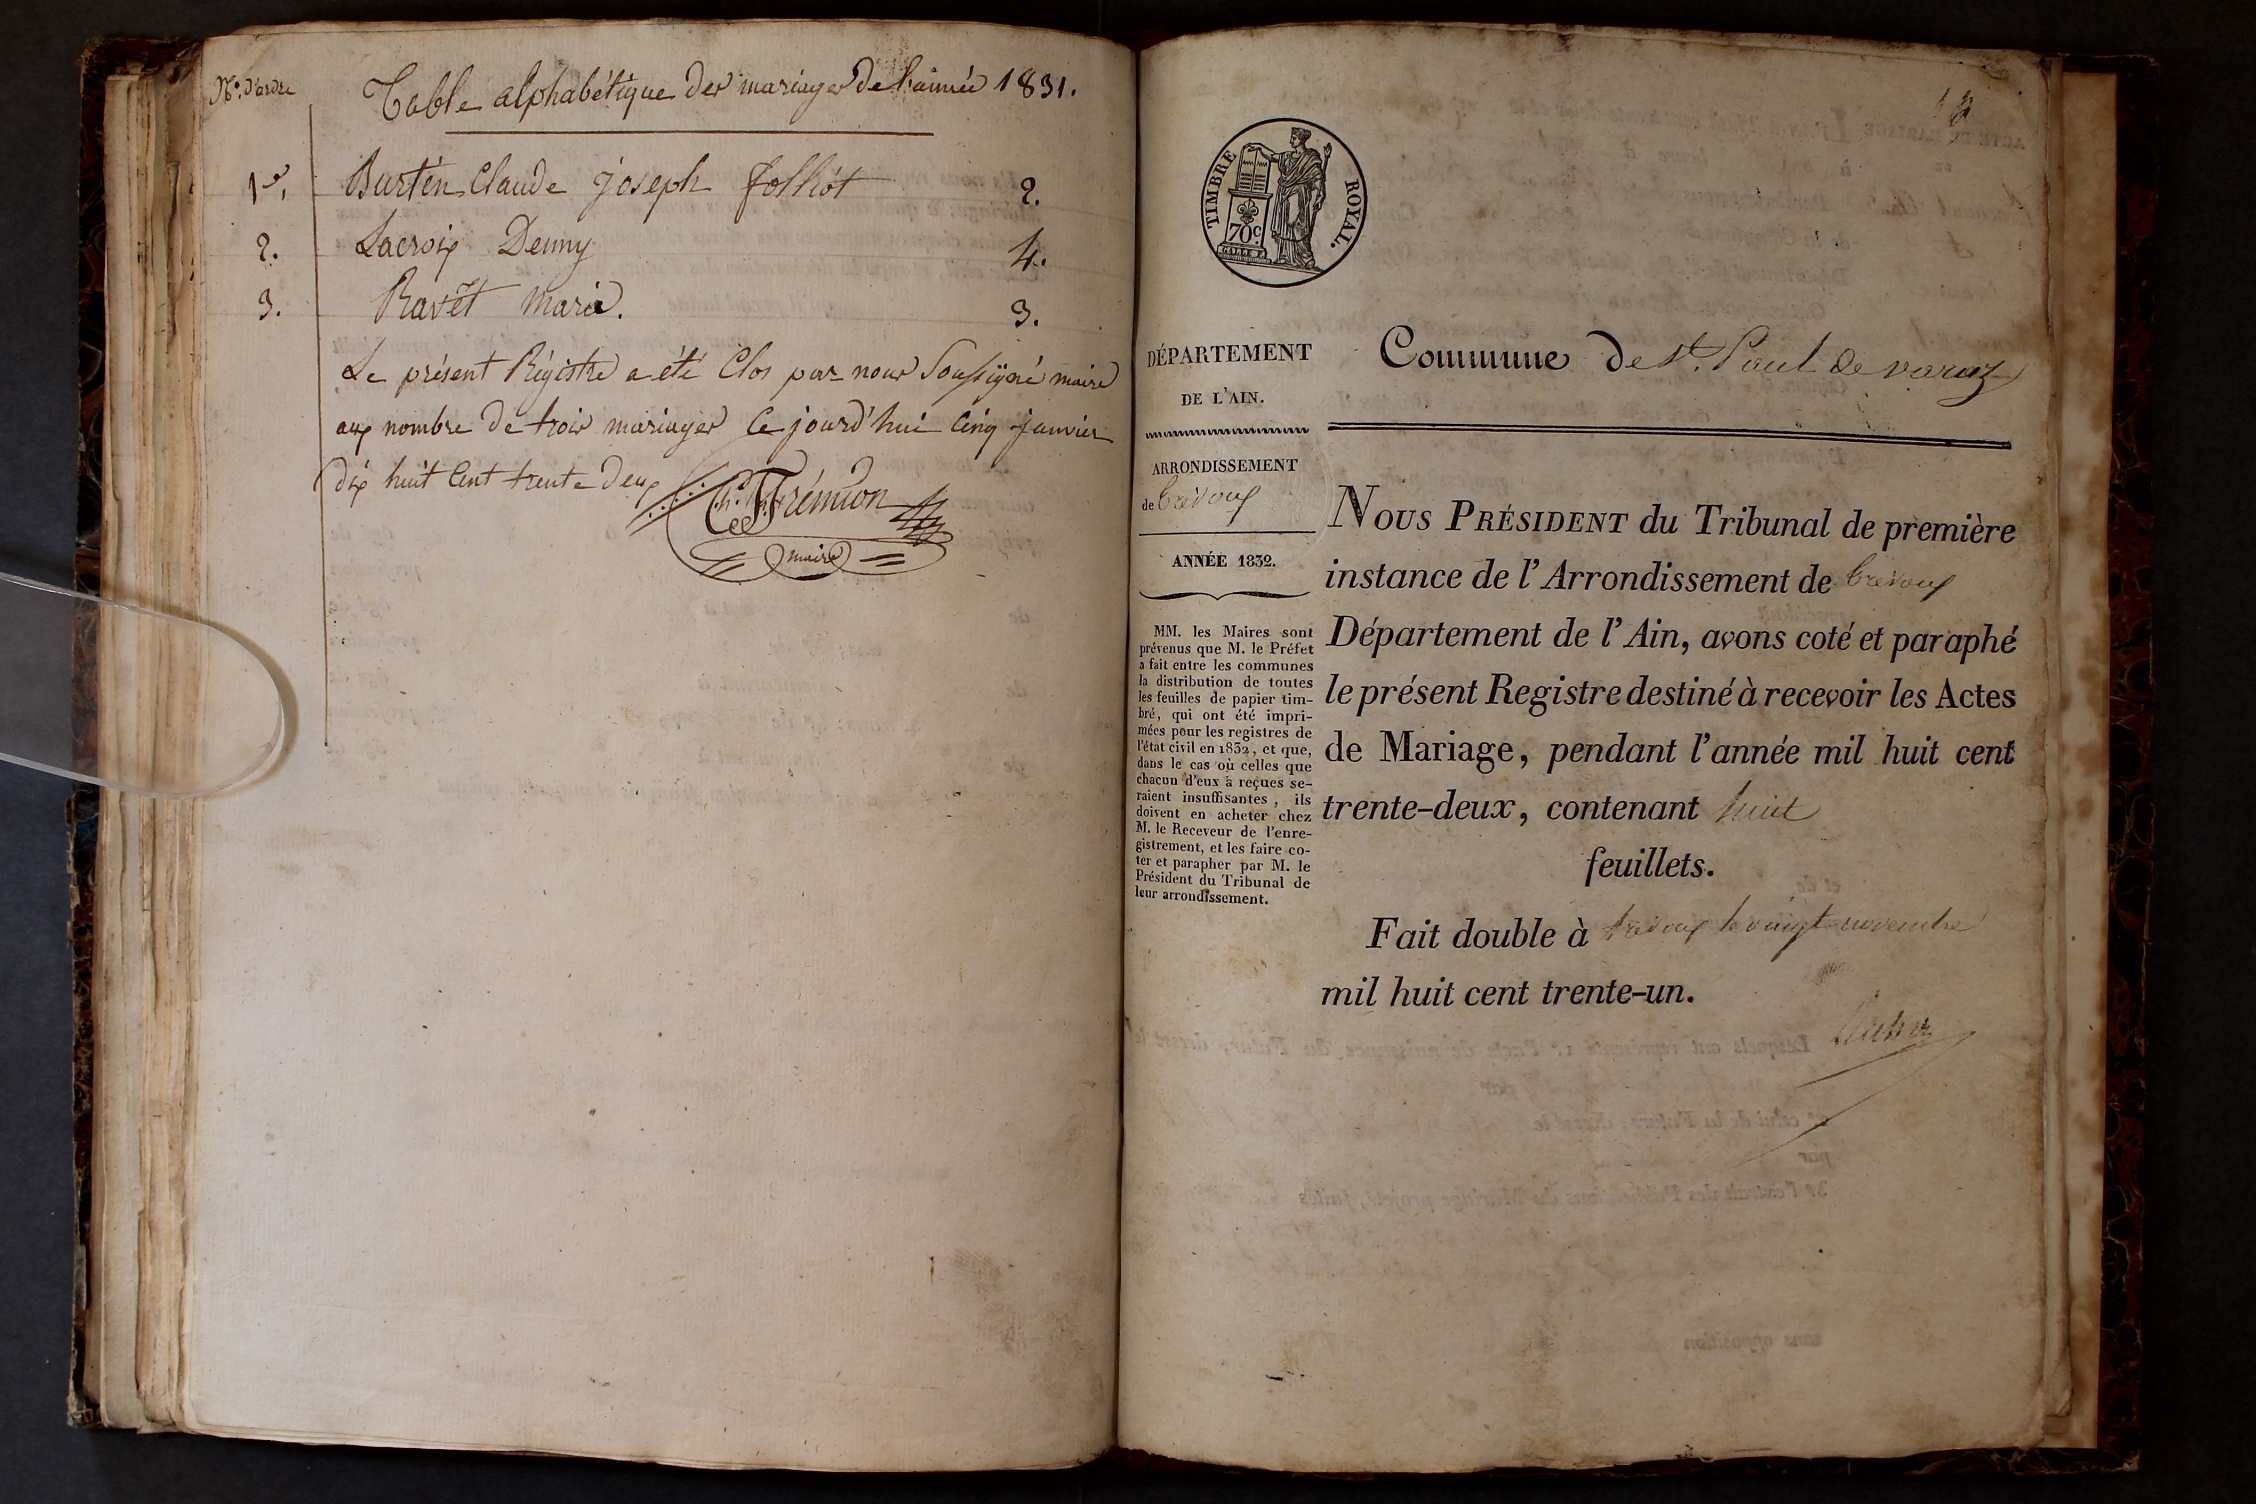 No. d'ordre
Table alphabétique des mariages de l'année 1831.
1er. Burtin Claude joseph folliot 2.
2. Lacroix Denny 4.
3. Ravet marie. 3.
Le présent Régistre a été Clos par nous Soussigné maire
aux nombre de trois mariages Ce jourd'hui Cinq janvier
dix huit Cent trente Deux
Trémion
maire
TIMBRE ROYAL.
70c.
DÉPARTEMENT
DE L'AIN.
ARRONDISSEMENT
de Trévoux
ANNÉE 1832.
MM. les Maires sont
prévenus que M. le Préfet
a fait entre les communes
la distribution de toutes
les feuilles de papier tim-
bré, qui ont été impri-
mées pour les registres de
l'état civil en 1832, et que,
dans le cas où celles que
chacun d'eux a reçues se-
raient insuffisantes, ils
doivent en acheter chez
M. le Receveur de l'enre-
gistrement, et les faire co-
ter et parapher par M. le
Président du Tribunal de
leur arrondissement.
Commune de St. Paul de varax
NOUS PRÉSIDENT du Tribunal de première
instance de l'Arrondissement de Trévoux
Département de l'Ain, avons coté et paraphé
le présent Registre destiné à recevoir les Actes
de Mariage, pendant l'année mil huit cent
trente-deux, contenant huit
feuillets.
Fait double à trévoux le vingt novembre
mil huit cent trente-un.